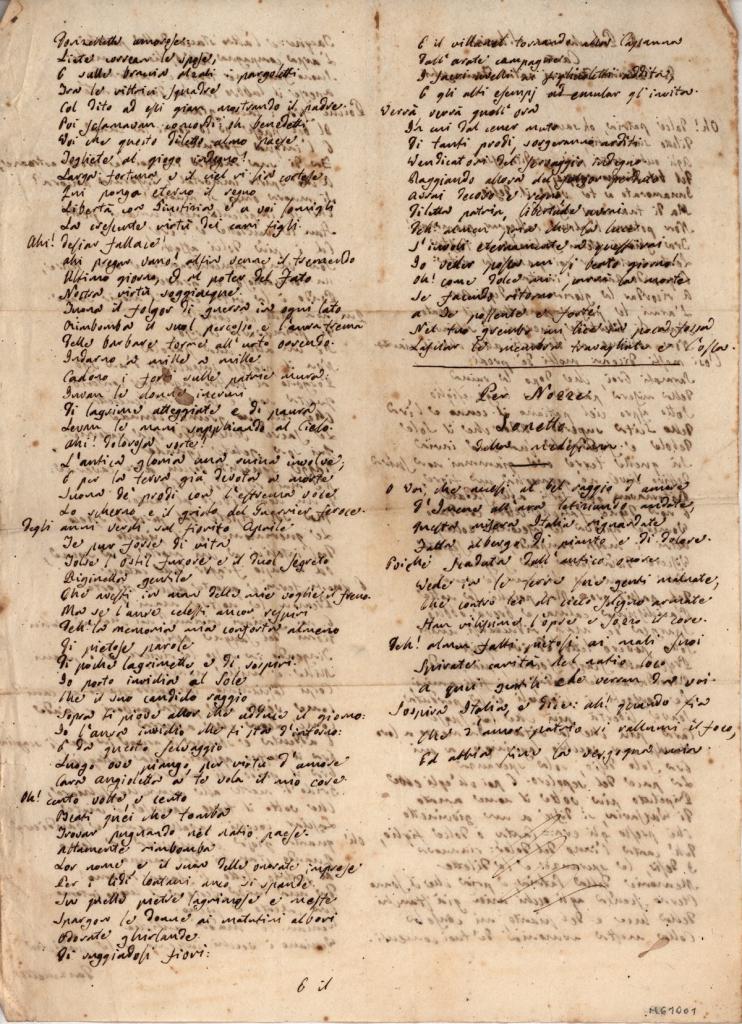 Donzellette amorose:
Liete correan le spose,
E sulle braccia alzati i pargoletti
Tra le vittrici squadre
Col dito ad essi gian mostrando il padre.
Poi sclamavan concordi: oh benedetti
Voi che questo diletto almo paese
Togliete al giogo indegno!
Larga fortuna, e il ciel vi sia cortese,
Qui ponga eterno il regno
Libertà con Giustizia, e a voi somigli
La crescente virtù dei cari figli.
Ahi! desiar fallace!
Ahi pregar vano! alfin venne il tremendo
Ultimo giorno, e al poter del Fato
Nostra virtù soggiacque.
Tuona il folgor di guerra in ogni lato,
Rimbomba il suol percosso e l'aura trema
Delle barbare torme all'urto orrendo.
Indarno a mille a mille
Cadono i forti sulle patrie mura:
Invan le donne inermi
Di lagrime atteggiate e di paura
Levan le mani supplicando al Cielo.
Ahi! dolorosa sorte!
L'antica gloria una ruina involve,
E per la terra già devota a morte
Suona de' prodi con l'estrema voce
Lo scherno e il grido del Guerrier feroce.
Degli anni verdi sul fiorito Aprile
Te pur forse di vita
Tolse l'ostil furore e il duol segreto
Biginella gentile
Che avesti in man delle mie voglie il freno.
Ma se l'aure celesti ancor respiri
Deh! la memoria mia conforta almeno
Di pietose parole
Di poche lagrimette e di sospiri.
Io porto invidia al Sole
Che il suo candido raggio
Sopra ti piove allor che adduce il giorno:
Io l'aura invidio che ti sta d'intorno:
E da questo selvaggio
Luogo ove piango, per virtù d'amore
Cara Angioletta a te vola il mio core.
Oh! cento volte e cento
Beati quei che tomba
Trovar pugnando nel natio paese.
Altamente rimbomba
Lor nome e il suon delle onorate imprese
Per i lidi lontani anco si spande
Su quelle pietre lagrimose e meste
Spargon le donne ai matutini albori
Odorate ghirlande
Di ruggiadosi fiori:
E il
E il villanel tornando alla Capanna
Dall'arate campagne
I sacri avelli ai figlioletti addita,
E gli alti esempj ad emular gl'invita.
Verrà verrà quell'ora
In cui dal cener muto
Di tanti prodi sorgeranno arditi
Vendicatori del servaggio indegno
Raggiando allora del
Assai decoro e regno
Diletta patria, libertade avrai.
Deh! almen pria che la luce
S'involi eternamente a questi rai
Io veder possa un sì beato giorno!
Oh! come dolce mi sarìa la morte
Se facendo ritorno
a Te possente e forte
Nel tuo grembo mi lice in poca fossa
Lasciar le membra travagliate e l'ossa.
Per Nozze
Sonetto
Della medesima
O Voi, che mossi al bel raggio d'amore
D'Imene all'ara letiziando andate,
Questa misera Italia riguardate
Fatta albergo di pianto e di dolore.
Poichè scaduta dall'antico onore
Vede in se Terre pur genti malnate,
Che contro lei di cieco sdegno armate
Han vilissime l'opre e sozzo il core.
Deh! almen fatti pietosi ai mali suoi
Spirate carità del natio loco
A quei gentili che verran da voi.
Sospira Italia, e dice: ah! quando fia
Che d'amor patrio si rallumi il foco,
Ed abbia fine la vergogna mia.
M61001